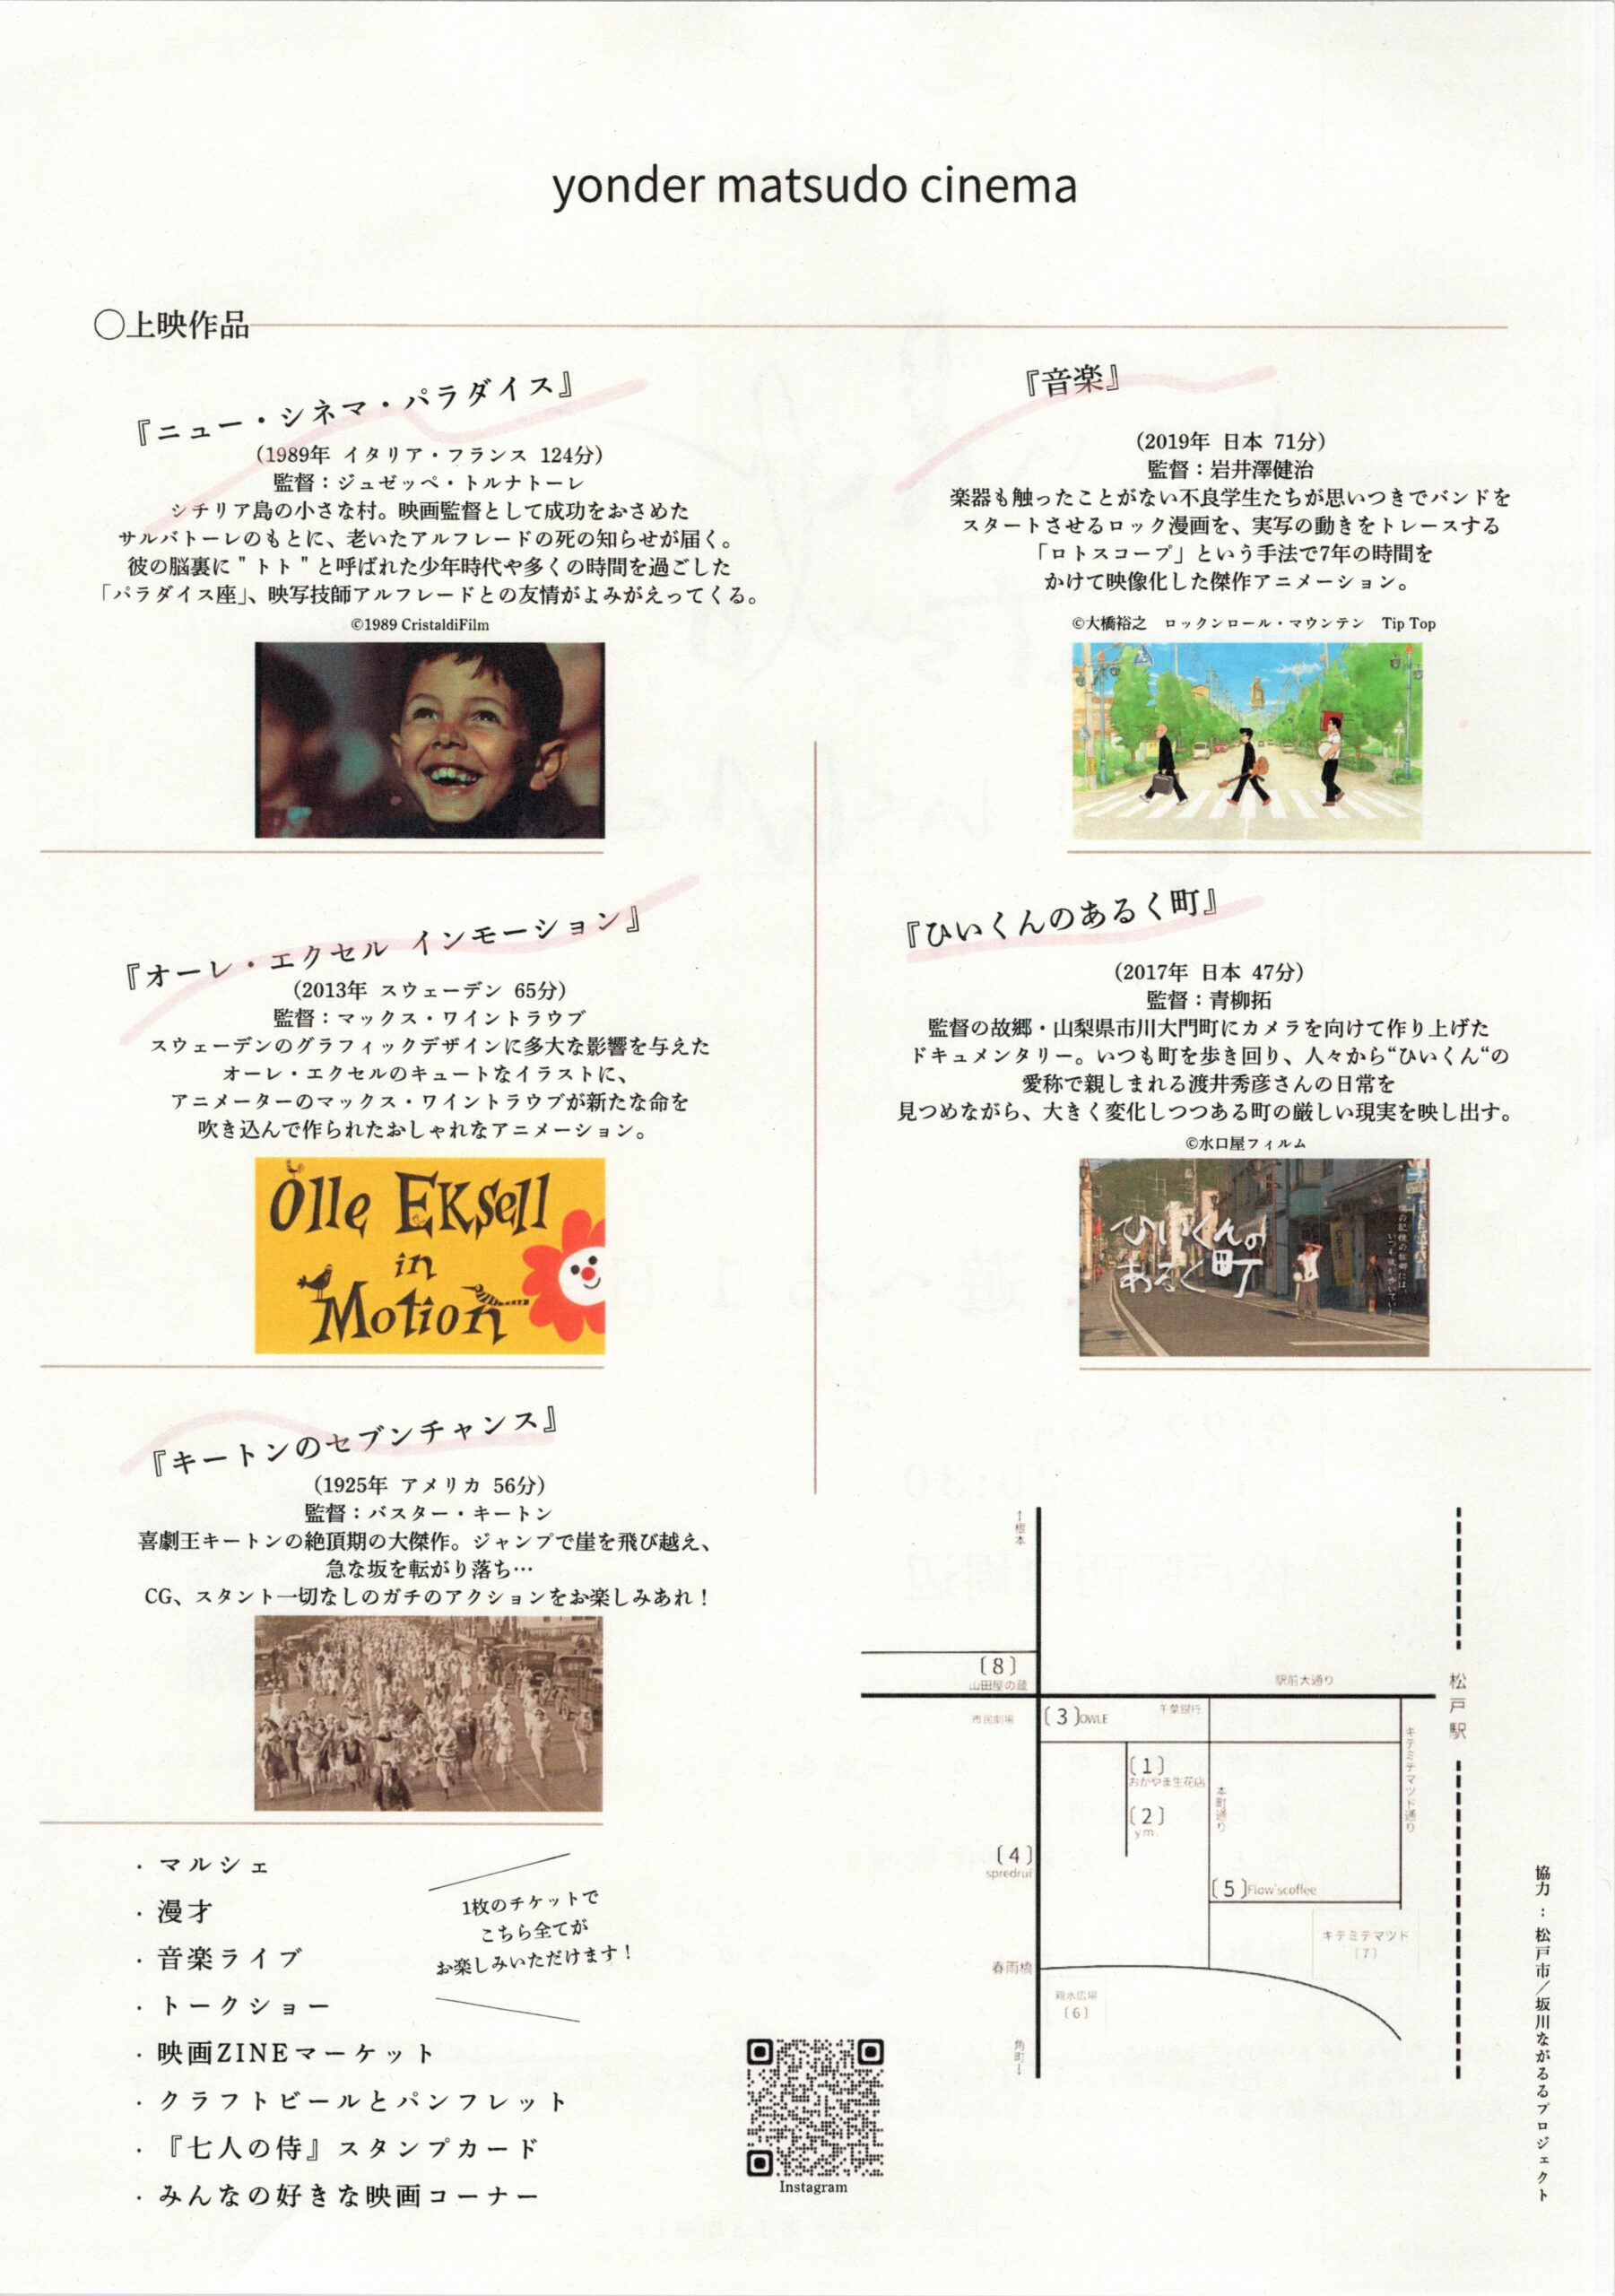 yonder matsudo cinema
○上映作品
『ニュー・シネマ・パラダイス』
（1989年 イタリア・フランス 124分）
監督：ジュゼッペ・トルナトーレ
シチリア島の小さな村。映画監督として成功をおさめた
サルバトーレのもとに、老いたアルフレードの死の知らせが届く。
彼の脳裏に＂トト＂と呼ばれた少年時代や多くの時間を過ごした
「パラダイス座」、映写技師アルフレードとの友情がよみがえってくる。
©1989 CristaldiFilm
『オーレ・エクセル インモーション』
（2013年 スウェーデン 65分）
監督：マックス・ワイントラウブ
スウェーデンのグラフィックデザインに多大な影響を与えた
オーレ・エクセルのキュートなイラストに、
アニメーターのマックス・ワイントラウブが新たな命を
吹き込んで作られたおしゃれなアニメーション。
Olle EKSell
in
Motion
『キートンのセブンチャンス』
（1925年 アメリカ 56分）
監督：バスター・キートン
喜劇王キートンの絶頂期の大傑作。ジャンプで崖を飛び越え、
急な坂を転がり落ち…
CG、スタント一切なしのガチのアクションをお楽しみあれ！
『音楽』
（2019年 日本 71分）
監督：岩井澤健治
楽器も触ったことがない不良学生たちが思いつきでバンドを
スタートさせるロック漫画を、実写の動きをトレースする
「ロトスコープ」という手法で7年の時間を
かけて映像化した傑作アニメーション。
©大橋裕之 ロックンロール・マウンテン Tip Top
『ひいくんのあるく町』
（2017年 日本 47分）
監督：青柳拓
監督の故郷・山梨県市川大門町にカメラを向けて作り上げた
ドキュメンタリー。いつも町を歩き回り、人々から“ひいくん“の
愛称で親しまれる渡井秀彦さんの日常を
見つめながら、大きく変化しつつある町の厳しい現実を映し出す。
©水口屋フィルム
ひいくんの
あるく町
僕の記憶の故郷には、
いつも彼が歩いていた
・マルシェ
・漫才
・音楽ライブ
・トークショー
・映画ZINEマーケット
・クラフトビールとパンフレット
・『七人の侍』スタンプカード
・みんなの好きな映画コーナー
1枚のチケットで
こちら全てが
お楽しみいただけます！
Instagram
↑根本
〔8〕
山田屋の蔵
駅前大通り
松戸駅
市民劇場
〔3〕OWLE
千葉銀行
キテミテマツド通り
〔1〕
おかやま生花店
〔2〕
y.m.
本町通り
〔4〕
spredrui
〔5〕Flow'scoffee
キテミテマツド
〔7〕
春雨橋
親水広場
〔6〕
角町↓
協力：松戸市／坂川ながるるプロジェクト